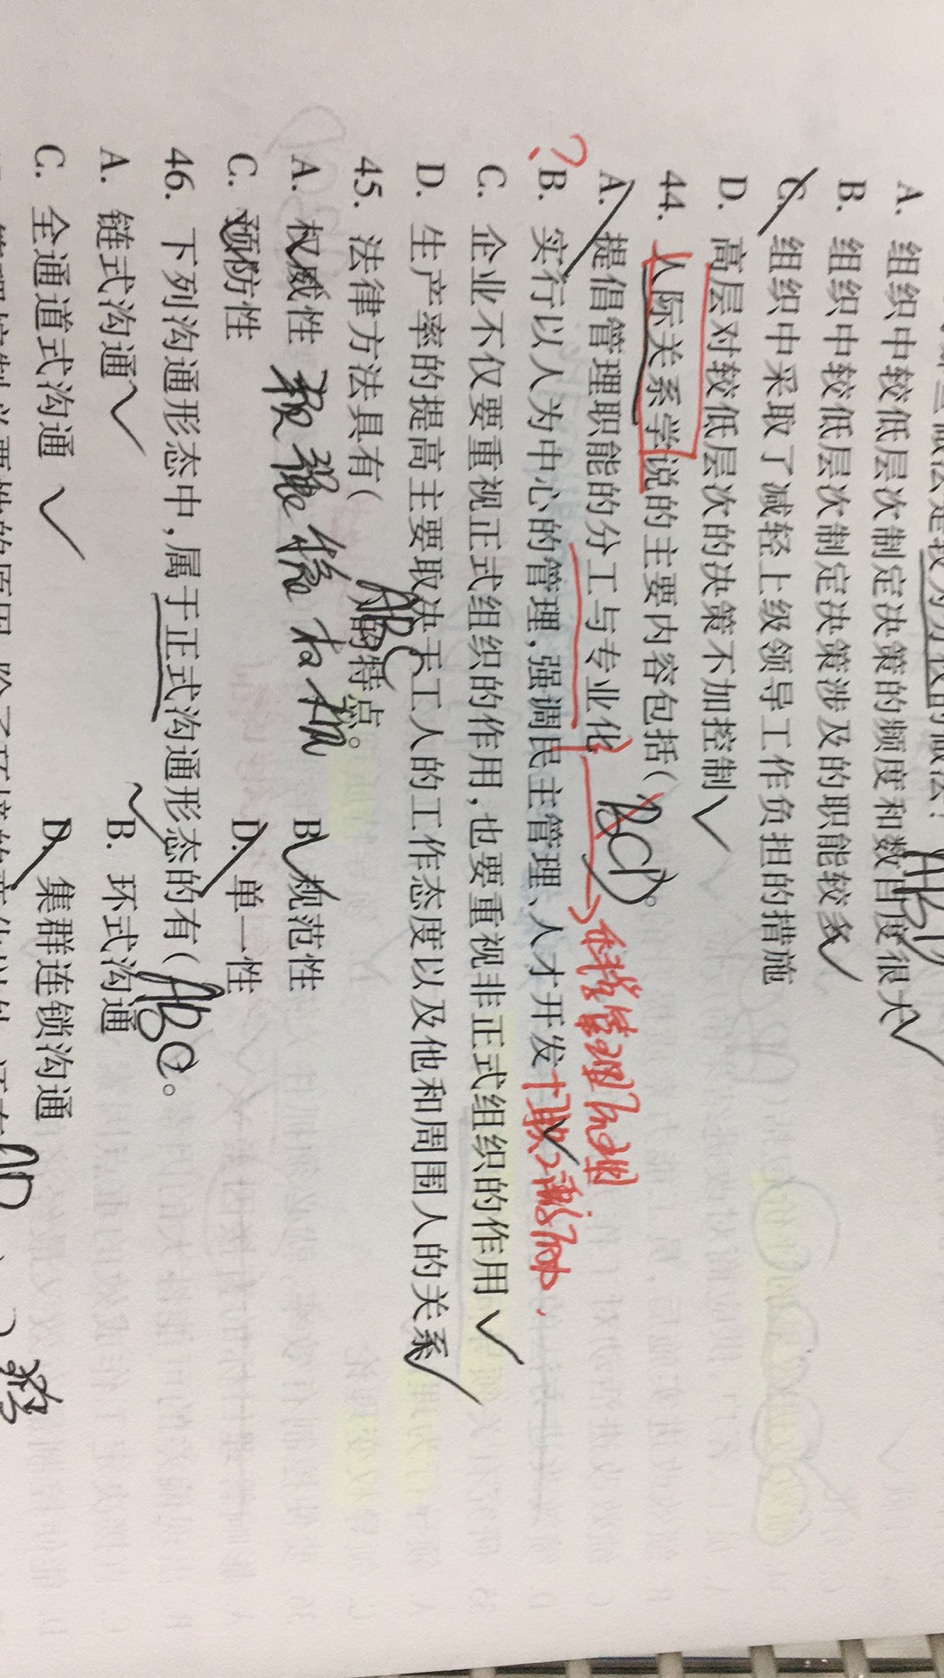 较为分权的做法?
A. 组织中较低层次制定决策的频度和数目度很大
B. 组织中较低层次制定决策涉及的职能较多
C. 组织中采取了减轻上级领导工作负担的措施
D. 高层对较低层次的决策不加控制
44. 人际关系学说的主要内容包括( BCD )。
A. 提倡管理职能的分工与专业化 → 科学管理理论
?B. 实行以人为中心的管理,强调民主管理、人才开发
C. 企业不仅要重视正式组织的作用,也要重视非正式组织的作用
D. 生产率的提高主要取决于工人的工作态度以及他和周围人的关系
45. 法律方法具有( ABC )的特点。
A. 权威性
B. 规范性
C. 预防性
D. 单一性
46. 下列沟通形态中,属于正式沟通形态的有( ABC )。
A. 链式沟通
B. 环式沟通
C. 全通道式沟通
D. 集群连锁沟通